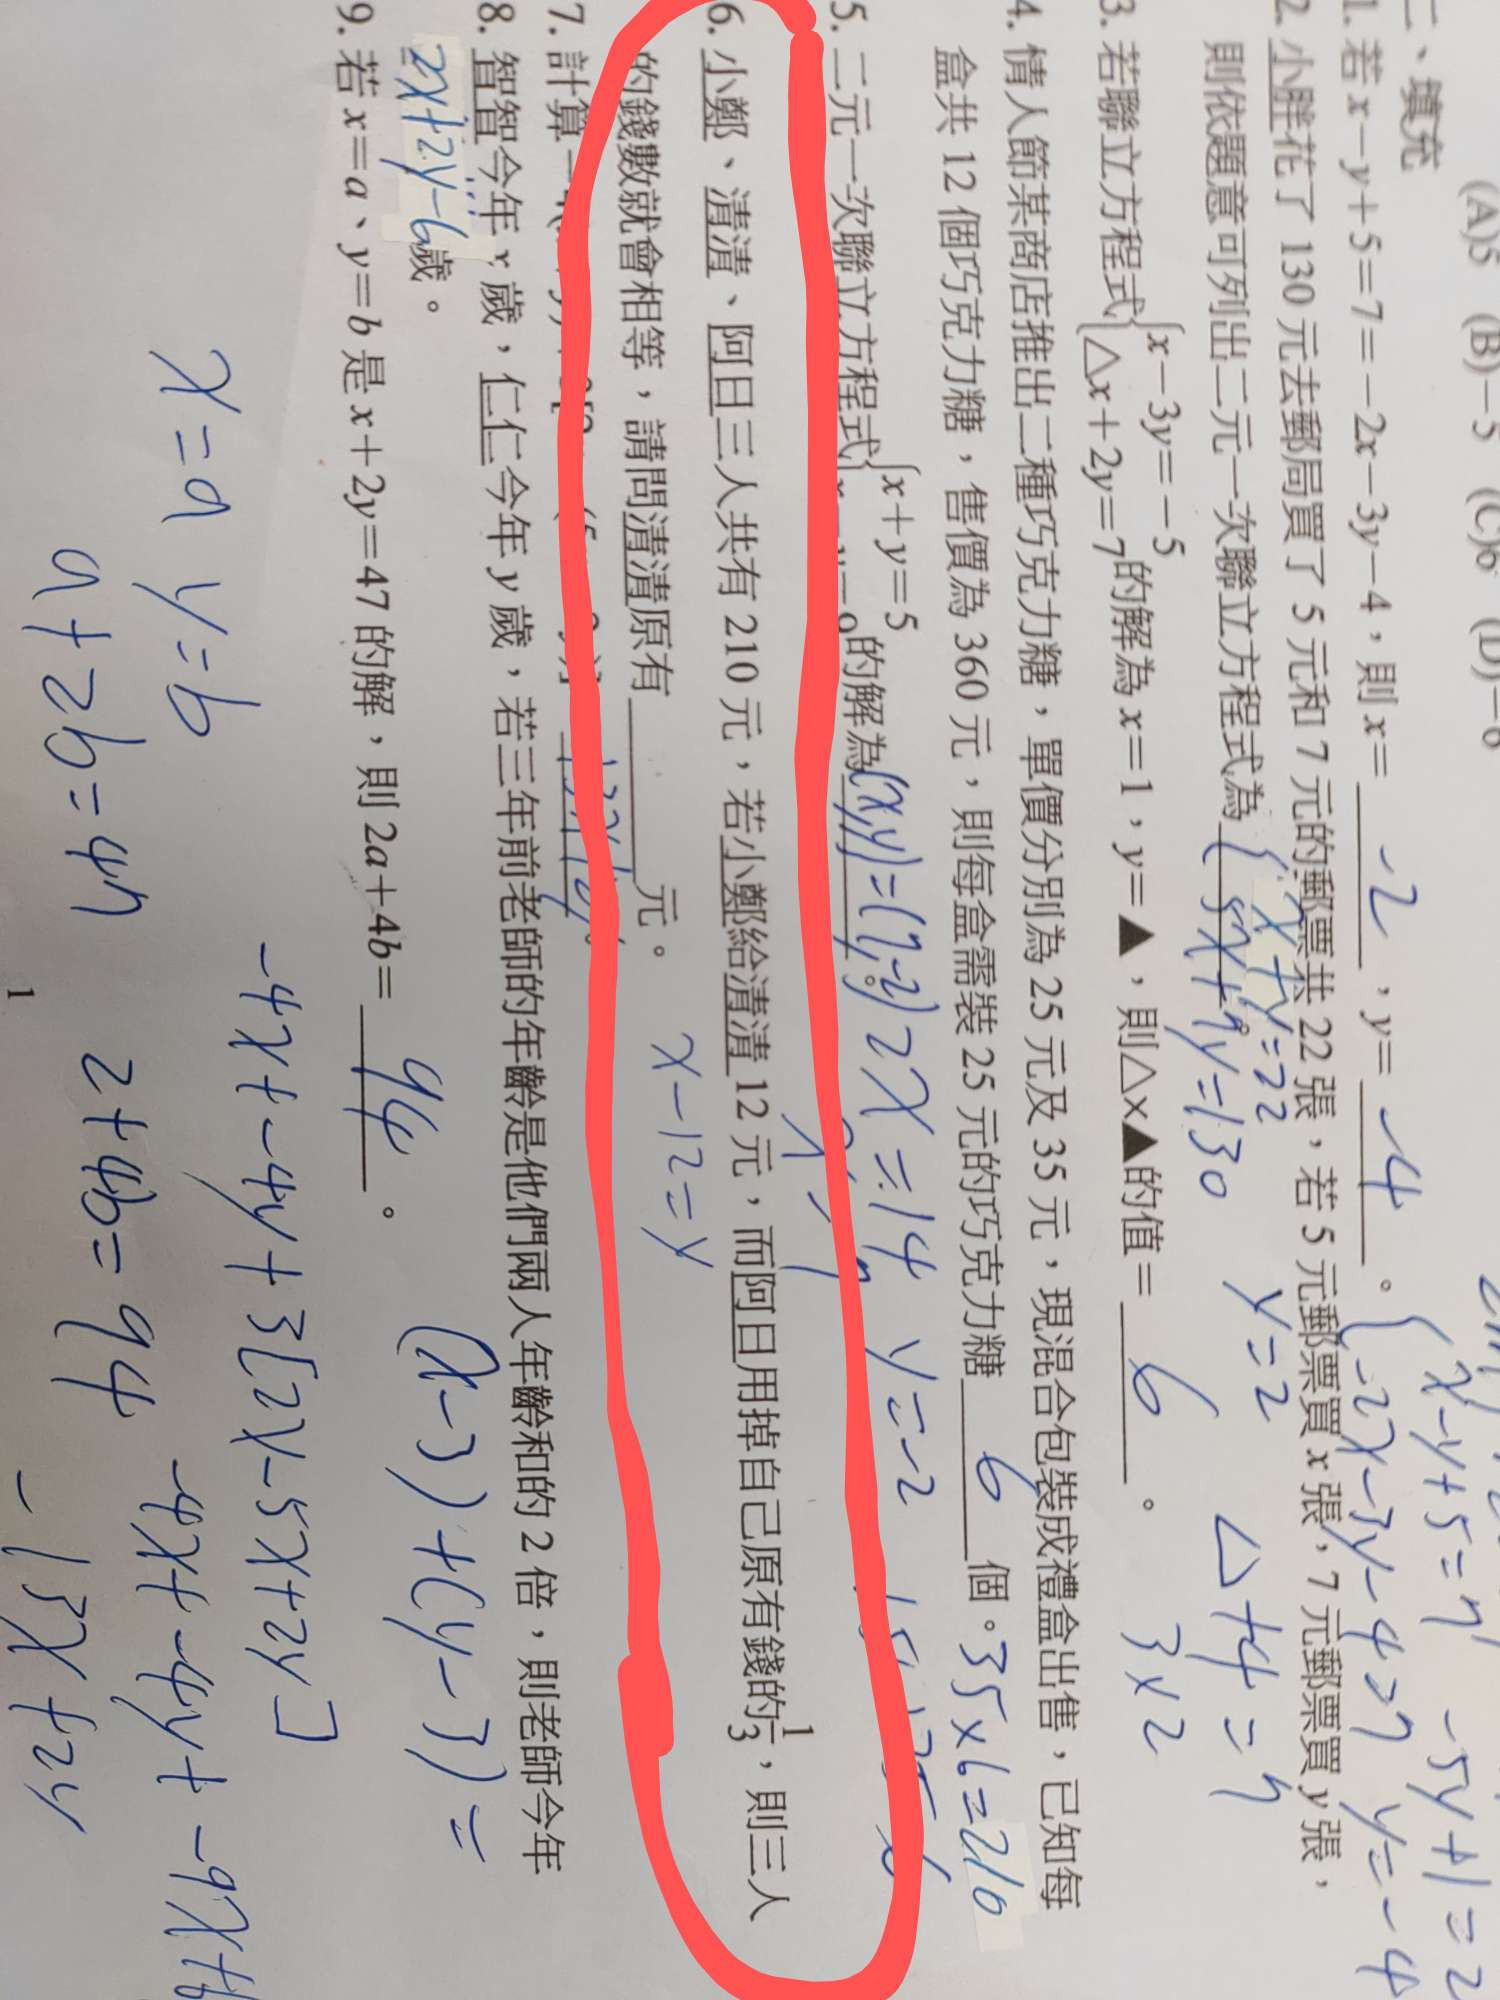 (A)5 (B)−5 (C)6 (D)−6
二、填充
1. 若 x−y+5=7=−2x−3y−4，則 x= -2 ，y= -4 。
2. 小胖花了 130 元去郵局買了 5 元和 7 元的郵票共 22 張，若 5 元郵票買 x 張，7 元郵票買 y 張，
則依題意可列出二元一次聯立方程式為
x+y=22
5x+7y=130
x-y+5=7
-2x-3y-4=7
y=-4
y=2
3. 若聯立方程式{x−3y=−5
△x+2y=7的解為 x=1，y=▲，則△×▲的值= 6 。
△+4=7
3×2
4. 情人節某商店推出二種巧克力糖，單價分別為 25 元及 35 元，現混合包裝成禮盒出售，已知每
盒共 12 個巧克力糖，售價為 360 元，則每盒需裝 25 元的巧克力糖 6 個。35×6=210
5. 二元一次聯立方程式{x+y=5
的解為(x,y)=(7,-2)。2x=14 y=-2
6. 小鄭、清清、阿日三人共有 210 元，若小鄭給清清 12 元，而阿日用掉自己原有錢的1/3，則三人
的錢數就會相等，請問清清原有 元。 x-12=y
7. 計算
8. 智智今年 x 歲，仁仁今年 y 歲，若三年前老師的年齡是他們兩人年齡和的 2 倍，則老師今年
2x+2y-6歲。 (x-3)+(y-3)=
9. 若 x=a、y=b 是 x+2y=47 的解，則 2a+4b= 94 。
-4x+-4y+3[2y-5x+2y]
x=a y=b
-4x+-4y+-9x+6
a+2b=47 2+4b=94
-13x+2y
1